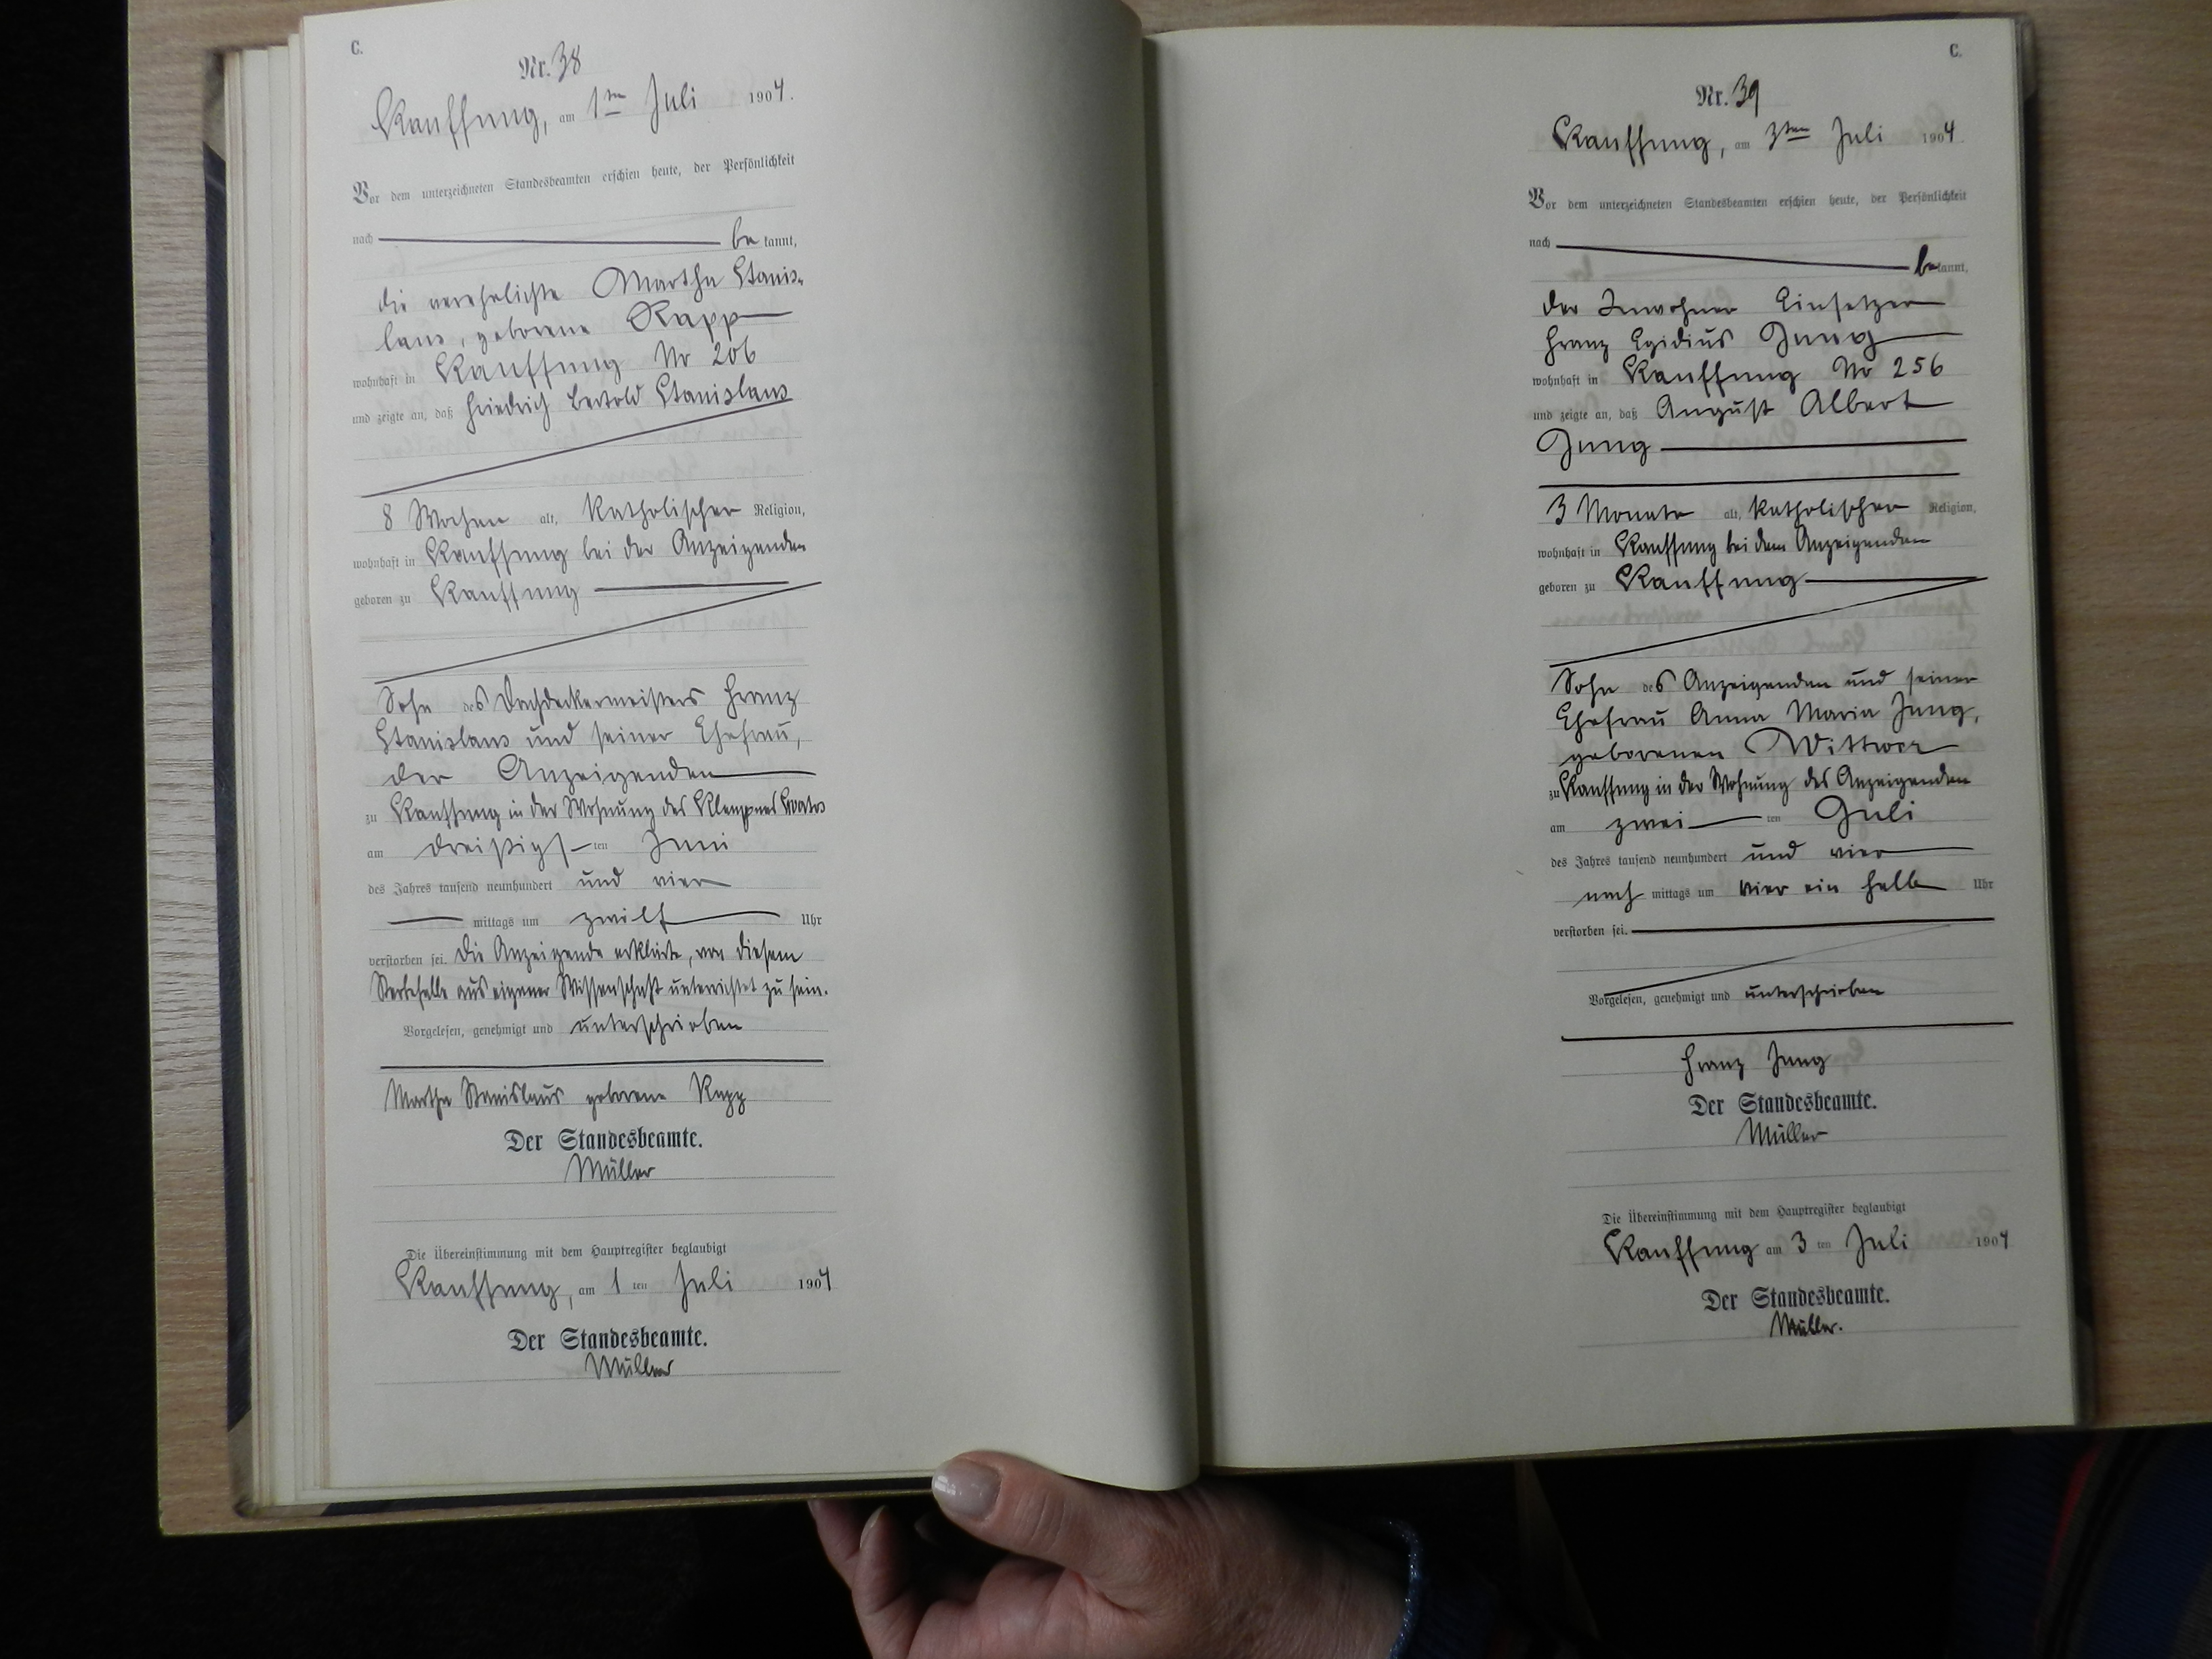 C.
Nr. 38
Kauffung, am 1ten Juli 1904.
Vor dem unterzeichneten Standesbeamten erschien heute, der Persönlichkeit
nach be kannt,
die verehelichte Martha Stanis-
laus, geborene Rapp
wohnhaft in Kauffung No 206
und zeigte an, daß Friedrich Bertold Stanislaus
8 Wochen alt, katholischer Religion,
wohnhaft in Kauffung bei der Anzeigenden
geboren zu Kauffung
Sohn des Dachdeckermeisters Franz
Stanislaus und seiner Ehefrau,
der Anzeigenden
zu Kauffung in der Wohnung des Klempners
am dreißigsten Juni
des Jahres tausend neunhundert und vier
mittags um zwölf Uhr
verstorben sei. Die Anzeigende erklärte, von diesem
Sterbefalle aus eigener Wissenschaft unterrichtet zu sein.
Vorgelesen, genehmigt und unterschrieben
Martha Stanislaus geborene Rapp
Der Standesbeamte.
Müller
Die Übereinstimmung mit dem Hauptregister beglaubigt
Kauffung, am 1 ten Juli 1904
Der Standesbeamte.
Müller
C.
Nr. 39
Kauffung, am 3ten Juli 1904.
Vor dem unterzeichneten Standesbeamten erschien heute, der Persönlichkeit
nach bekannt,
der Inwohner Einsetzer
Franz Egidius Jung
wohnhaft in Kauffung No 256
und zeigte an, daß August Albert
Jung
3 Monate alt, katholischer Religion,
wohnhaft in Kauffung bei dem Anzeigenden
geboren zu Kauffung
Sohn des Anzeigenden und seiner
Ehefrau Anna Maria Jung,
geborenen Wittwer
zu Kauffung in der Wohnung des Anzeigenden
am zwei ten Juli
des Jahres tausend neunhundert und vier
nach mittags um vier ein halb Uhr
verstorben sei.
Vorgelesen, genehmigt und unterschrieben
Franz Jung
Der Standesbeamte.
Müller
Die Übereinstimmung mit dem Hauptregister beglaubigt
Kauffung am 3 ten Juli 1904
Der Standesbeamte.
Müller.